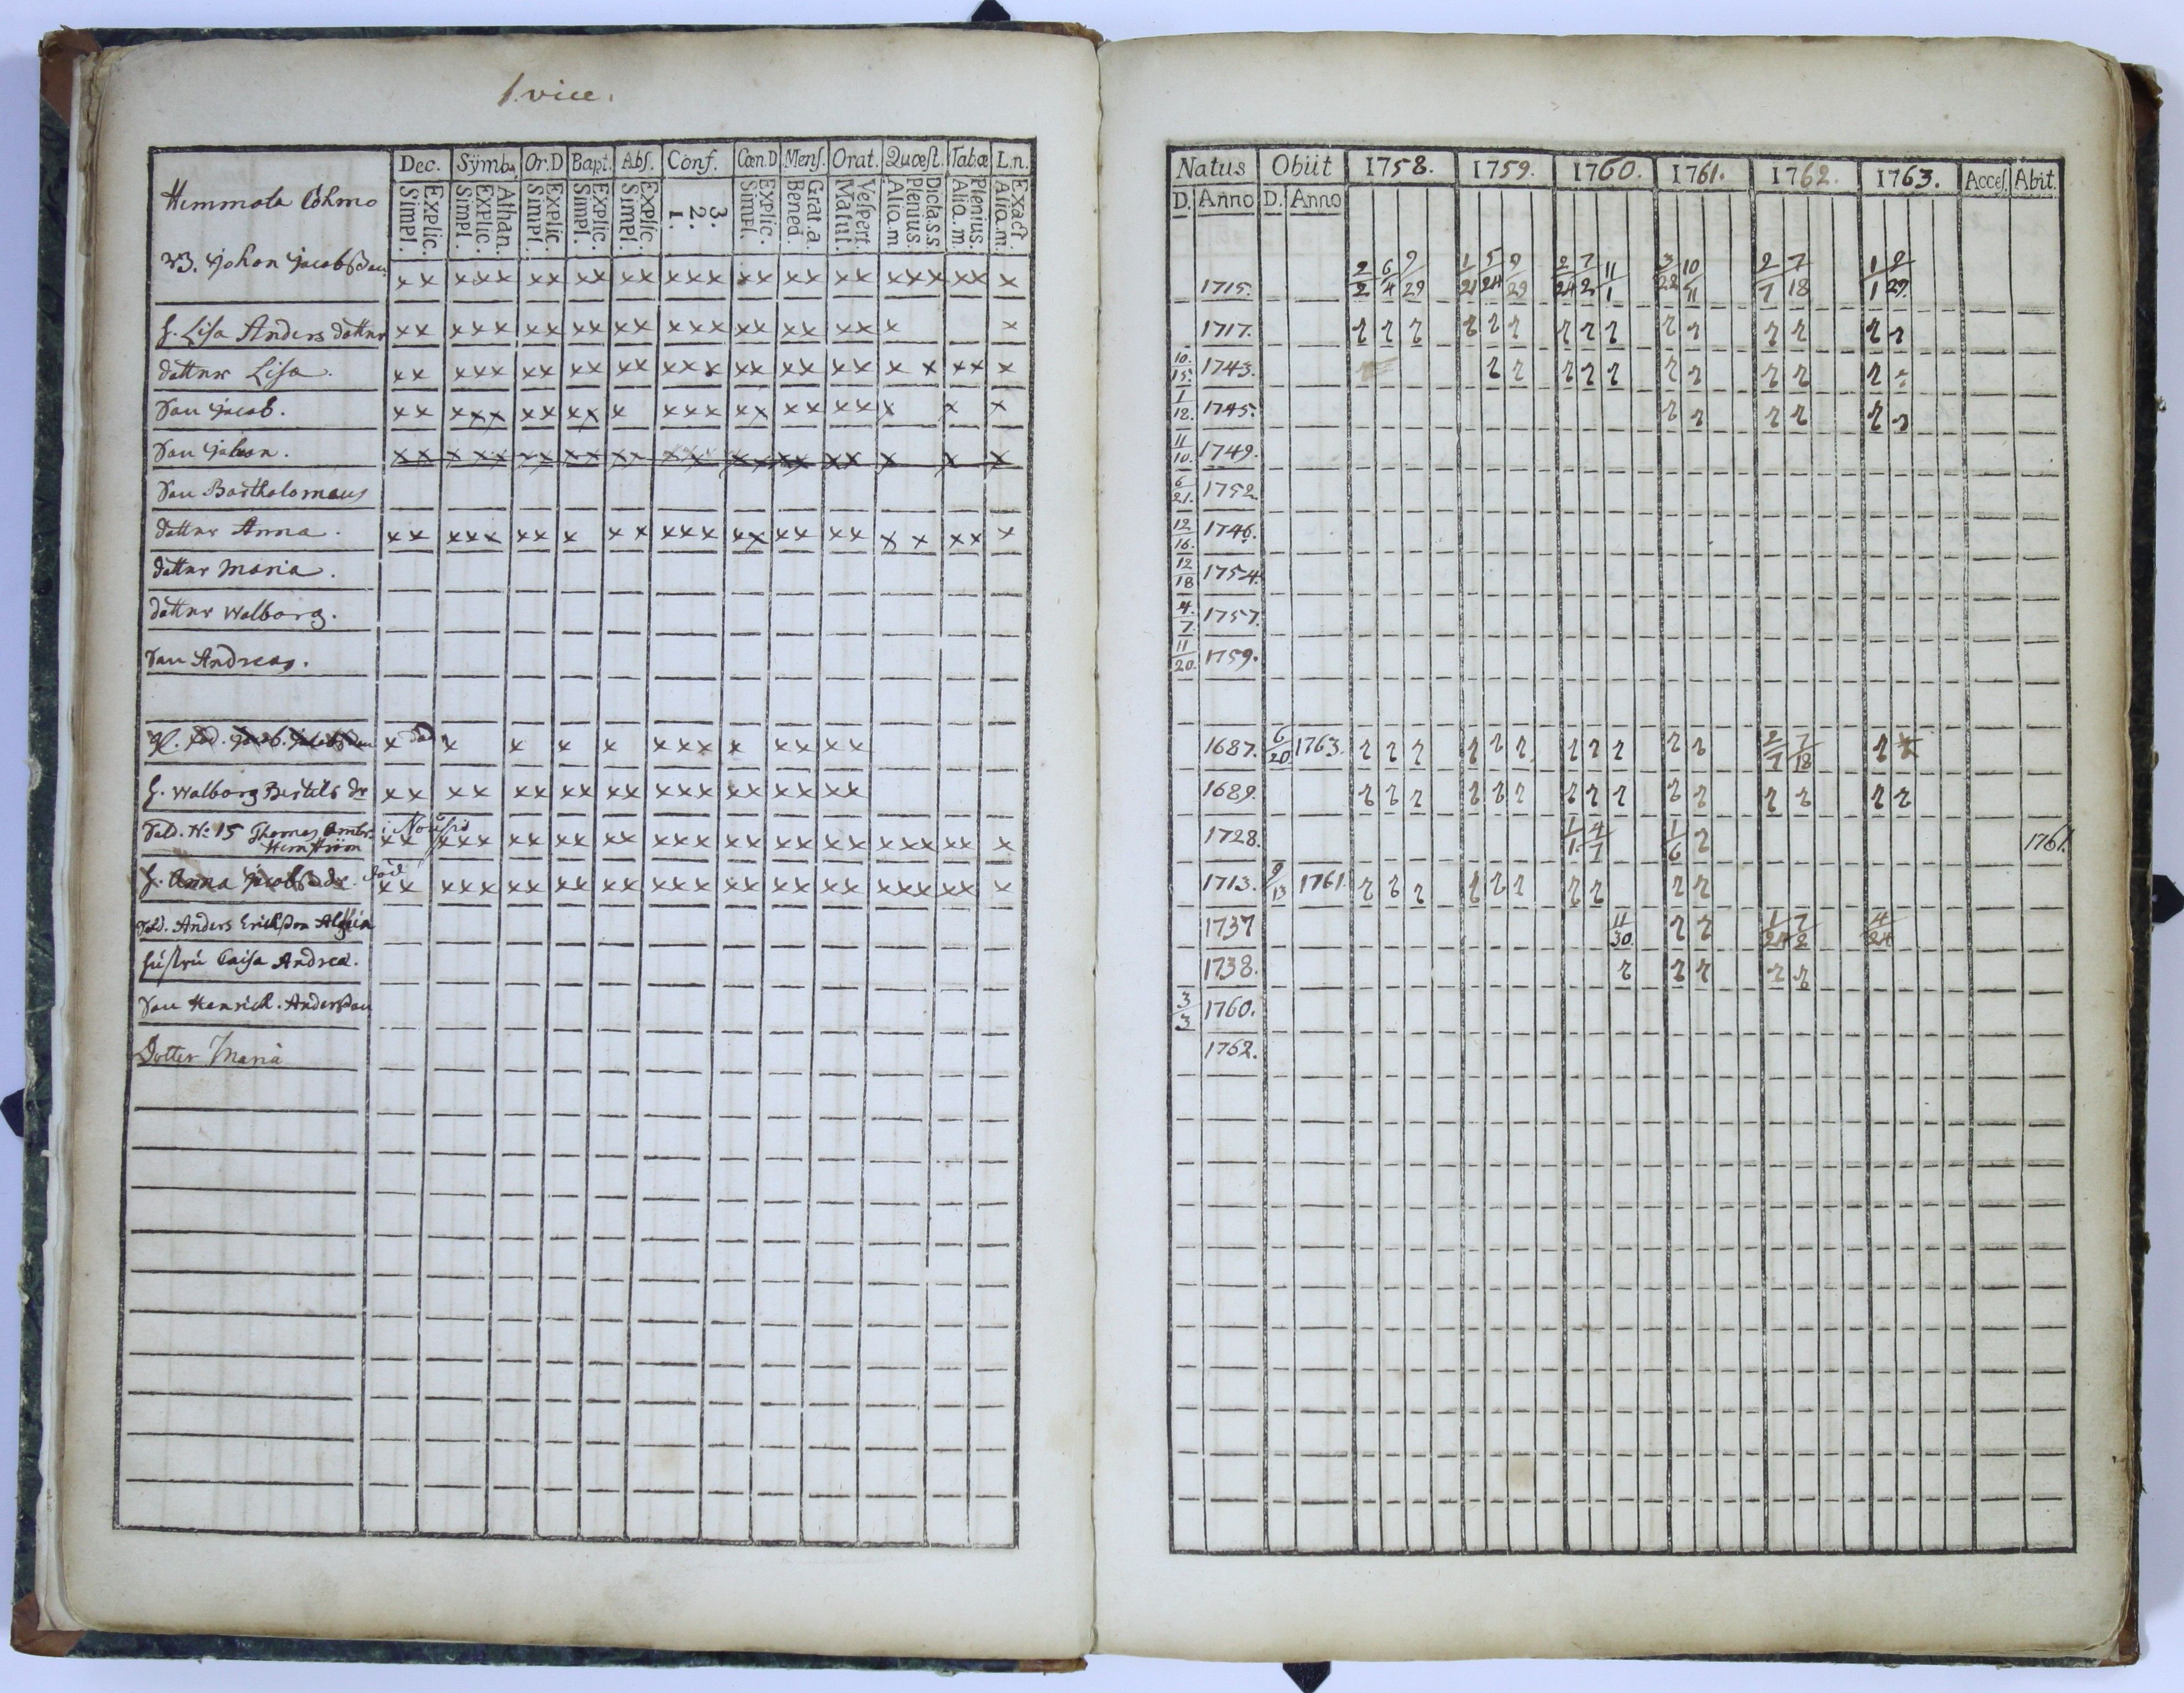 1. vice.
Dec. Symb. Or.D Bapt. Abs. Conf. Cœn.D Mens. Orat. Quæst. Tab.æ L.n.
Simpl. Explic. Simpl. Explic. Athan. Simpl. Explic. Simpl. Explic. Simpl. Explic. 1. 2. 3. Simpl. Explic. Bened. Grat.a. Matut. Vespert. Alio.m. Plenius. Dicta.s.s. Alio.m. Plenius. Alio.m. Exact.
Hemmola
Johan Jacobsson x x x x x x x x x x x x x x x x x x x x x x x x x
h. Lisa Anders dotter x x x x x x x x x x x x x x x x x x x x x
dotter Lisa. x x x x x x x x x x x x x x x x x x x x x x x x
Son Jacob. x x x x x x x x x x x x x x x x x x x x x x
Son Johan. x x x x x x x x x x x x x x x x x x x x x x x
Son Bartholomæus
dotter Anna. x x x x x x x x x x x x x x x x x x x x x x x x
dotter Maria.
dotter Walborg.
Son Andreas.
x död x x x x x x x x x x x x
h. Walborg Bertils dr x x x x x x x x x x x x x x x x x x x
Sold. No 15 Thomas i Nousis
Hemström x x x x x x x x x x x x x x x x x x x x x x x x x x
h. Anna Jacobs dr. död x x x x x x x x x x x x x x x x x x x x x x x x x x
Sold. Anders Erichsson
hustru Caisa Andrea.
Son Henrich. Andersson
Dotter Maria
Natus Obiit 1758. 1759. 1760. 1761. 1762. 1763. Acces. Abit.
D. Anno D. Anno
1715. 2/2 6/4 9/29 1/21 5/24 9/29 2/24 7/2 11/1 3/22 10/11 2/7 7/18 1/1 9/29.
1717. 2 2 2 2 2 2 2 2 2 2 2 2 2 2 2
10./15. 1743. 2 2 2 2 2 2 2 2 2 2
1/12. 1745. 2 2 2 2 2 2
11/10. 1749.
6/21. 1752.
12/16. 1746.
12/18 1754.
4./7. 1757.
11/20. 1759.
1687. 6/20 1763. 2 2 2 2 2 2 2 2 2 2 2 2/7 7/18 2
1689. 2 2 2 2 2 2 2 2 2 2 2 2 2 2 2
1728. 1/1 4/1 1/6 2 1761.
1713. 9/13 1761. 2 2 2 2 2 2 2 2 2 2
1737 11/30. 2 2 1/24 7/2 4/24
1738. 2 2 2 2 2
3/3 1760.
1762.